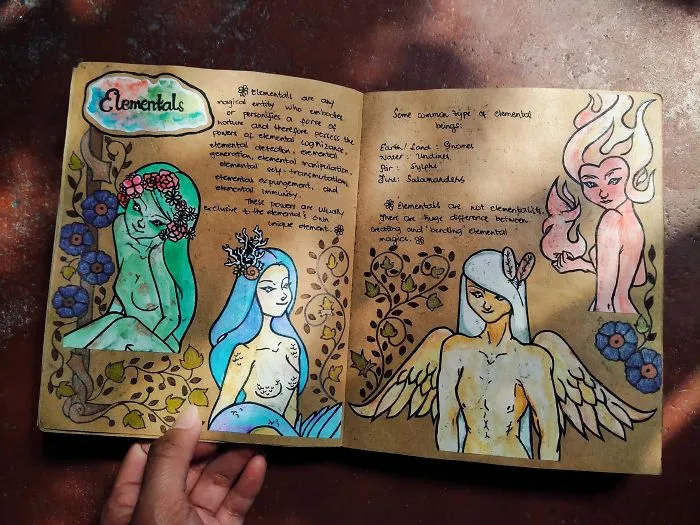 Elementals
Elementals are any
magical entity who embodies
or personifies a force of
nature and therefore possess the
powers of elemental cognizance,
elemental detection, elemental
generation, elemental manipulation,
elemental self-transmutation,
elemental expungement, and
elemental immunity.
These powers are usually
exclusive to the elemental's own
unique element.
Some common type of elemental
beings:
Earth/Land: Gnomes
Water: Undines
Air: Sylphs
Fire: Salamanders
Elementals are not elementalists.
There are huge difference between
creating and 'bending' elemental
magics.